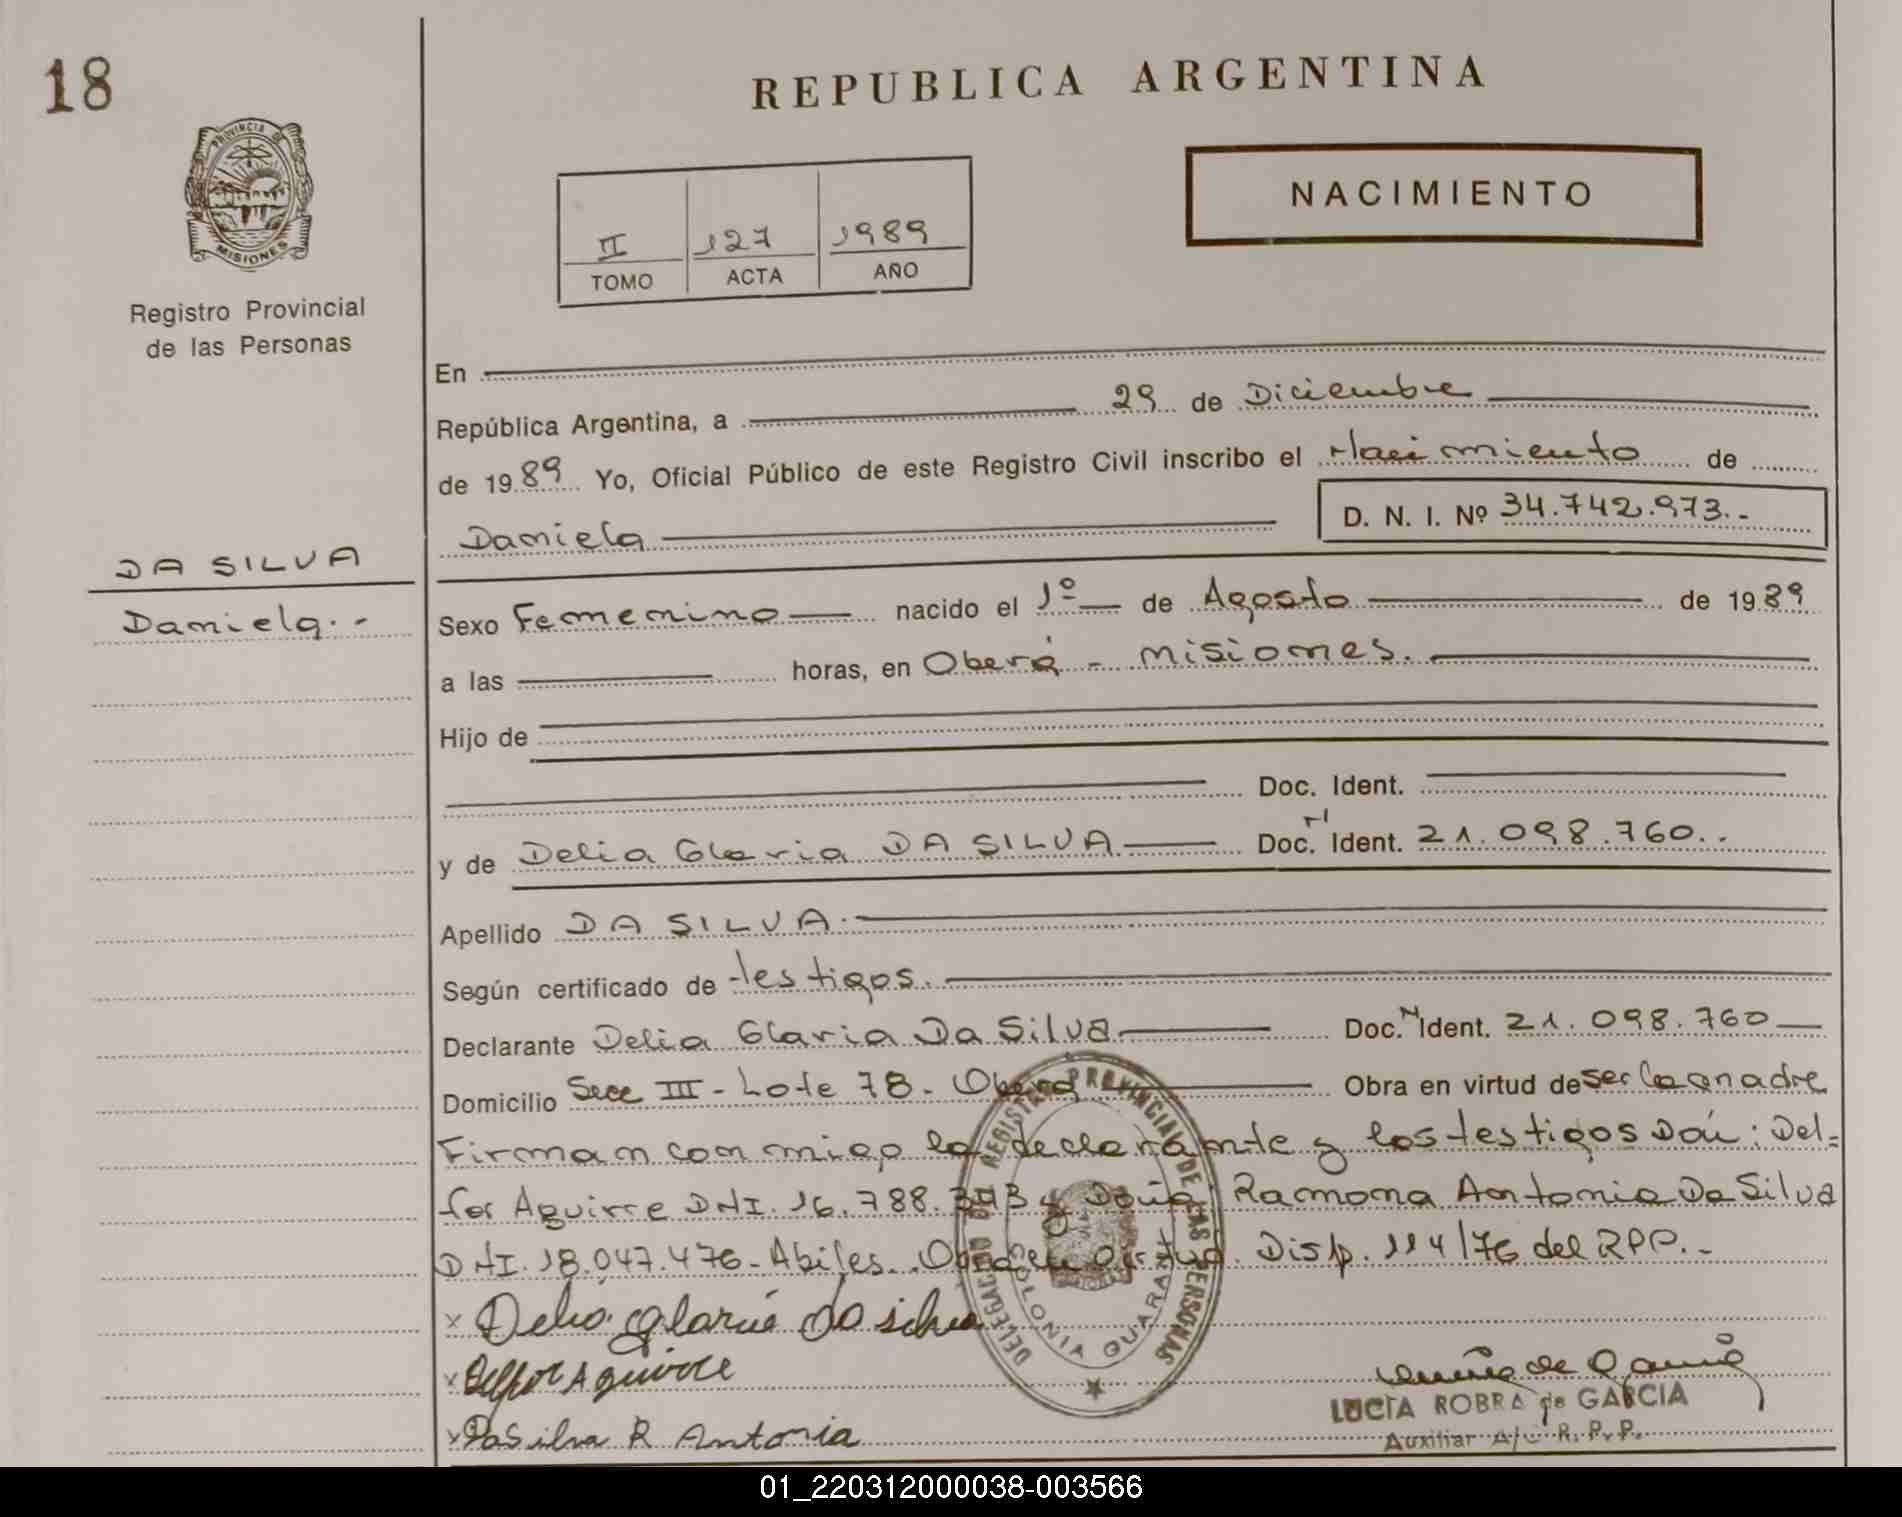 18
REPUBLICA ARGENTINA
PROVINCIA DE
MISIONES
Registro Provincial
de las Personas
NACIMIENTO
II 127 1989
TOMO ACTA AÑO
En
República Argentina, a 29 de Diciembre
de 1989 Yo, Oficial Público de este Registro Civil inscribo el Nacimiento de
Daniela D. N. I. Nº 34.742.973.-
DA SILVA
Daniela.-
Sexo Femenino nacido el 1º de Agosto de 1989
a las horas, en Oberá - Misiones.
Hijo de
Doc. Ident.
y de Delia Gloria DA SILVA Doc. N Ident. 21.098.760..
Apellido DA SILVA.
Según certificado de testigos.
Declarante Delia Gloria Da Silva Doc. N Ident. 21.098.760
Domicilio Secc III - Lote 78 - Oberá Obra en virtud de ser la madre
Firman conmigo la declarante y los testigos Don: Del=
for Aguirre DNI. 16.788.343 y Doña: Ramona Antonia Da Silva
DNI. 18.047.476 - Abiles. Obra en virtud. Disp. 114/76 del RPP.-
x Delia gloria da silva
x Delfor Aguirre
x DaSilva R Antonia
DELEGACION DEL REGISTRO PROVINCIAL DE LAS PERSONAS
COLONIA GUARANI
LUCIA ROBRA de GARCIA
Auxiliar A/c R.P.P.
01_220312000038-003566